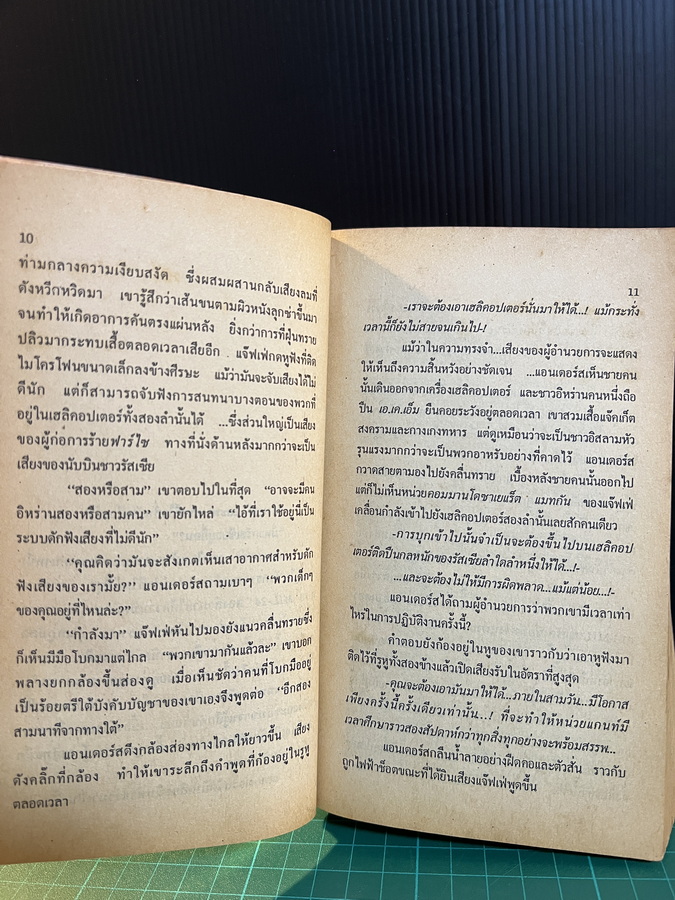 10
ท่ามกลางความเงียบสงัด ซึ่งผสมผสานกลับเสียงลมที่
ดังหวีดหวิดมา เขารู้สึกว่าเส้นขนตามผิวหนังลุกซ่าขึ้นมา
จนทำให้เกิดอาการคันตรงแผ่นหลัง ยิ่งกว่าการที่ฝุ่นทราย
ปลิวมากระทบเสื้อตลอดเวลาเสียอีก แจ๊ฟเฟ่กดหูฟังที่ติด
ไมโครโฟนขนาดเล็กลงข้างศีรษะ แม้ว่ามันจะจับเสียงได้ไม่
ดีนัก แต่ก็สามารถจับฟังการสนทนาบางตอนของพวกที่
อยู่ในเฮลิคอปเตอร์ทั้งสองลำนั้นได้ ...ซึ่งส่วนใหญ่เป็นเสียง
ของผู้ก่อการร้ายฟาร์ไซ ทางที่นั่งด้านหลังมากกว่าจะเป็น
เสียงของนับบินชาวรัสเซีย
“สองหรือสาม” เขาตอบไปในที่สุด “อาจจะมีคน
อิหร่านสองหรือสามคน” เขายักไหล่ “ไอ้ที่เราใช้อยู่นี่เป็น
ระบบดักฟังเสียงที่ไม่ดีนัก”
“คุณคิดว่ามันจะสังเกตเห็นเสาอากาศสำหรับดัก
ฟังเสียงของเรามั้ย?” แอนเดอร์สถามเบาๆ “พวกเด็กๆ
ของคุณอยู่ที่ไหนล่ะ?”
“กำลังมา” แจ๊ฟเฟ่หันไปมองยังแนวคลื่นทรายซึ่ง
ก็เห็นมีมือโบกมาแต่ไกล “พวกเขามากันแล้วละ” เขาบอก
พลางยกกล้องขึ้นส่องดู เมื่อเห็นชัดว่าคนที่โบกมืออยู่
เป็นร้อยตรีใต้บังคับบัญชาของเขาเองจึงพูดต่อ “อีกสอง
สามนาทีจากทางใต้”
แอนเดอร์สดึงกล้องส่องทางไกลให้ยาวขึ้น เสียง
ดังคลิ๊กที่กล้อง ทำให้เขาระลึกถึงคำพูดที่ก้องอยู่ในรูหู
ตลอดเวลา
11
-เราจะต้องเอาเฮลิคอปเตอร์นั่นมาให้ได้...! แม้กระทั่ง
เวลานี้ก็ยังไม่สายจนเกินไป-!
แม้ว่าในความทรงจำ...เสียงของผู้อำนวยการจะแสดง
ให้เห็นถึงความสิ้นหวังอย่างชัดเจน ...แอนเดอร์สเห็นชายคน
นั้นเดินออกจากเครื่องเฮลิคอปเตอร์ และชาวอิหร่านคนหนึ่งถือ
ปืน เอ.เค.เอ็ม ยืนคอยระวังอยู่ตลอดเวลา เขาสวมเสื้อแจ๊คเก็ต
สงครามและกางเกงทหาร แต่ดูเหมือนว่าจะเป็นชาวอิสลามหัว
รุนแรงมากกว่าจะเป็นพวกอาหรับอย่างที่คาดไว้ แอนเดอร์ส
กวาดสายตามองไปยังคลื่นทราย เบื้องหลังชายคนนั้นออกไป
แต่ก็ไม่เห็นหน่วยคอมมานโดซาเยแร็ต แมทกัน ของแจ๊ฟเฟ่
เคลื่อนกำลังเข้าไปยังเฮลิคอปเตอร์สองลำนั้นเลยสักคนเดียว
-การบุกเข้าไปนั้นจำเป็นจะต้องขึ้นไปบนเฮลิคอป
เตอร์ติดปืนกลหนักของรัสเซียลำใดลำหนึ่งให้ได้...!-
...และจะต้องไม่ให้มีการผิดพลาด...แม้แต่น้อย...!-
แอนเดอร์สได้ถามผู้อำนวยการว่าพวกเขามีเวลาเท่า
ไหร่ในการปฏิบัติงานครั้งนี้?
คำตอบยังก้องอยู่ในหูของเขาราวกับว่าเอาหูฟังมา
ติดไว้ที่รูหูทั้งสองข้างแล้วเปิดเสียงรับในอัตราที่สูงสุด
-คุณจะต้องเอามันมาให้ได้...ภายในสามวัน...มีโอกาส
เพียงครั้งนี้ครั้งเดียวเท่านั้น...! ที่จะทำให้หน่วยแกนท์มี
เวลาศึกษาราวสองสัปดาห์กว่าทุกสิ่งทุกอย่างจะพร้อมสรรพ...
แอนเดอร์สกลืนน้ำลายอย่างฝืดคอและตัวสั่น ราวกับ
ถูกไฟฟ้าช็อตขณะที่ได้ยินเสียงแจ๊ฟเฟ่พูดขึ้น